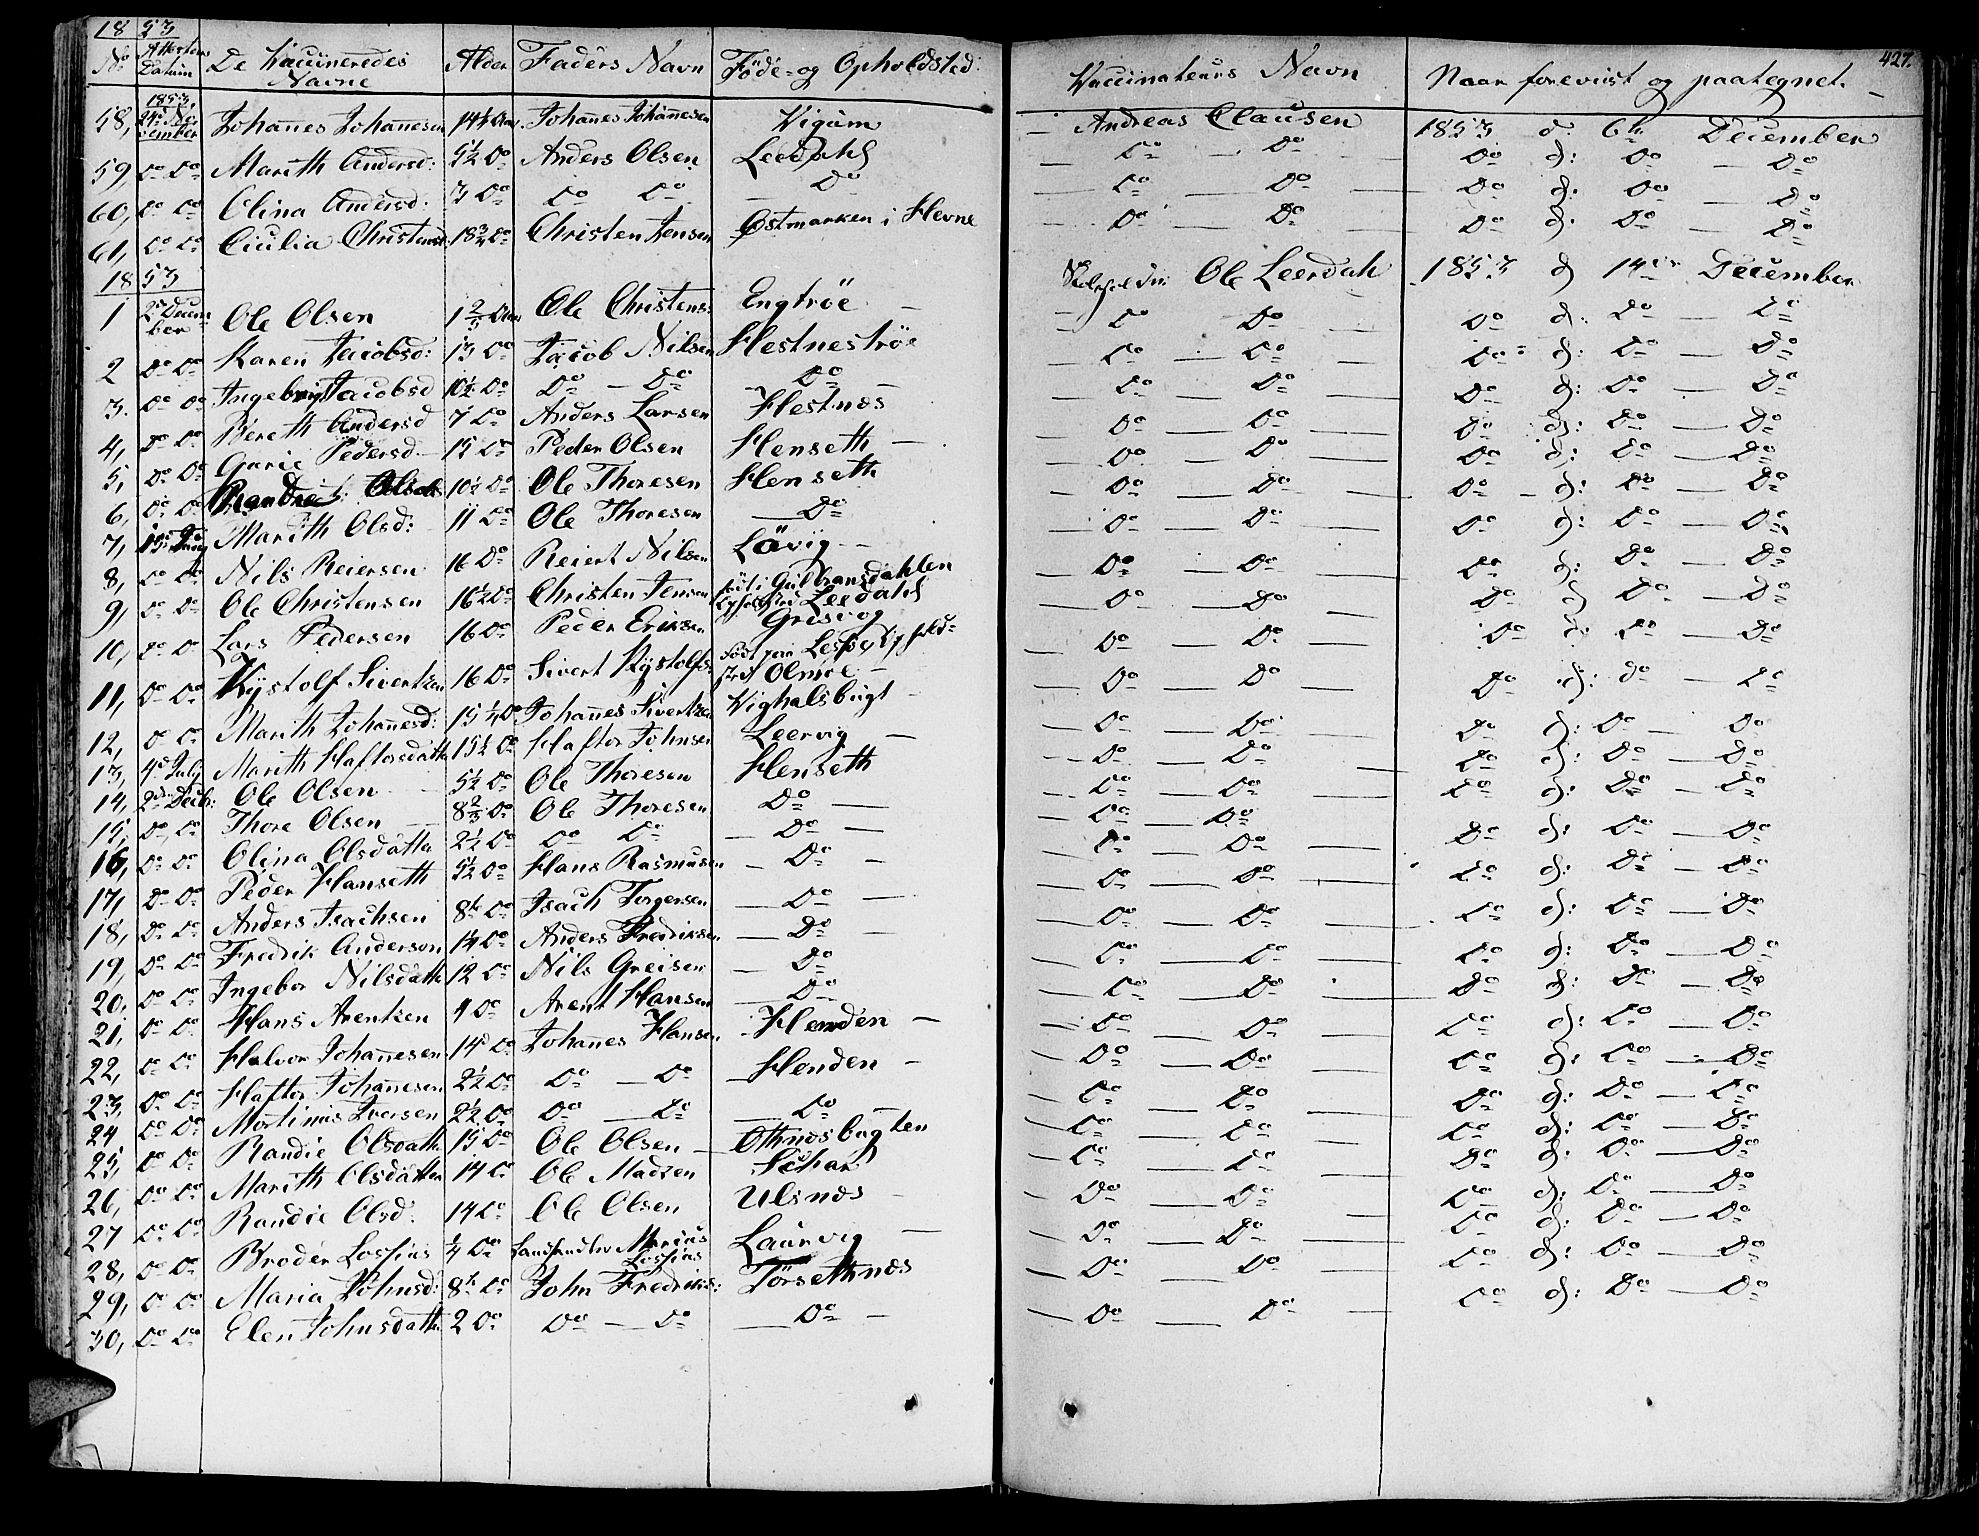 1853
No. Attestens Datum De Vaccineredes Navne Alder Faders Navn Föde- og Opholdsted: Vaccinateurs Navn Naar foreviist og paategnet. 427.
58, 1853, 24de November Johannes Johannesen Johannes Johannesen Vigum Andreas Clausen 1853 d: 6te December
59, Do Do Marith Andersd: 5½ Do Anders Olsen Leerdahl Do Do Do d: Do Do
60, Do Do Olina Andersd: 3 Do Do Do Do Do Do Do d: Do Do
61, Do Do Cicilia Christensd: 18¾ Do Christen Jensen Østmarken i Hevne Do Do Do d: Do Do
1853
1 2de December Ole Olsen 1⅔ Ole Christens: Engtröe Ole Leerdah 1853 d 14de December
2 Do Do Karen Jacobsd: 13 Do Jacob Nilsen Hestneströe Do Do Do d: Do Do
3. Do Do Ingebrigt Jacobsd 10½ Do Do Do Do Do Do Do d: Do Do
4, Do Do Bereth Andersd 7 Do Anders Larsen Hestnæs Do Do Do d: Do Do
5, Do Do Gurie Pedersd 15 Do Peder Olsen Henseth Do Do Do d: Do Do
6, Do Do Olsd 10½ Do Ole Thoresen Henseth Do Do Do d: Do Do
7, Marith Olsd: 11 Do Ole Thoresen Do Do Do Do d: Do Do
8, Do Do Nils Reiersen 16 Do Reiert Nilsen Lövig Do Do Do d: Do Do
9, Do Do Ole Christensen 16½ Do Christen Jensen föd i Gulbransdahlen Leerdahl Do Do Do d: Do Do
10, Do Do Lars Pedersen 16 Do Peder Eriksen Do Do Do d Do Do
11, Do Do Kystolf Sivertsen 16 Do Sivert Kystolfs: Olmöe Do Do Do d: Do Do
12, Do Do Marith Johannesd: 15¼ Do Johannes Sivertsen Vighalsbugt Do Do Do d: Do Do
13, 4de July Marith Haftorsdatte 15½ Do Haftor Johnsen Leervig Do Do Do d: Do Do
14, 2den Decb: Ole Olsen 5½ Do Ole Thoresen Henseth Do Do Do d: Do Do
15, Do Do Thore Olsen 8⅔ Do Ole Thoresen Do Do Do
16, Do Do Olina Olsdatte 2½ Do Do Do Do Do Do Do d: Do Do
17, Do Do Peder Hanseth 5½ Do Hans Rasmusen Do Do Do Do d: Do Do
18, Do Do Anders Isachsen Do Isach Torgersen Do Do Do Do d: Do Do
19, Do Do Fredrik Anderson 14 Do Anders Fredriksen Do Do Do Do d: Do Do
20, Do Do Ingebor Nilsdatte 12 Do Nils Greisen Do Do Do Do d: Do Do
21, Do Do Hans Arentzen 4 Do Arent Hansen Do Do Do Do d: Do Do
22, Do Do Halvor Johannesen 14 Do Johannes Hansen Hemden Do Do Do d: Do Do
23, Do Do Haftor Johannesen 2½ Do Do Do Henden Do Do Do d: Do Do
24, Do Do Mortinus Iversen 2½ Do Do Do Do Do Do Do d: Do Do
25, Do Do Randie Olsdatte 15 Do Ole Olsen Othnæsbugten Do Do Do d: Do Do
26, Do Do Marith Olsdatter 14 Do Ole Madsen Do Do Do d: Do Do
27 Do Do Randie Olsd: 14 Do Ole Olsen Ulsnæs Do Do Do d: Do Do
28, Do Do Broder Lossius ¼ Do Landhandler Marcus Lossius Laurvig Do Do Do d: Do Do
29, Do Do Maria Johnsd: Do John Fredriks: Törsethnæs Do Do Do d: Do Do
30, Do Do Elen Johnsdatte 2 Do Do Do Do Do Do